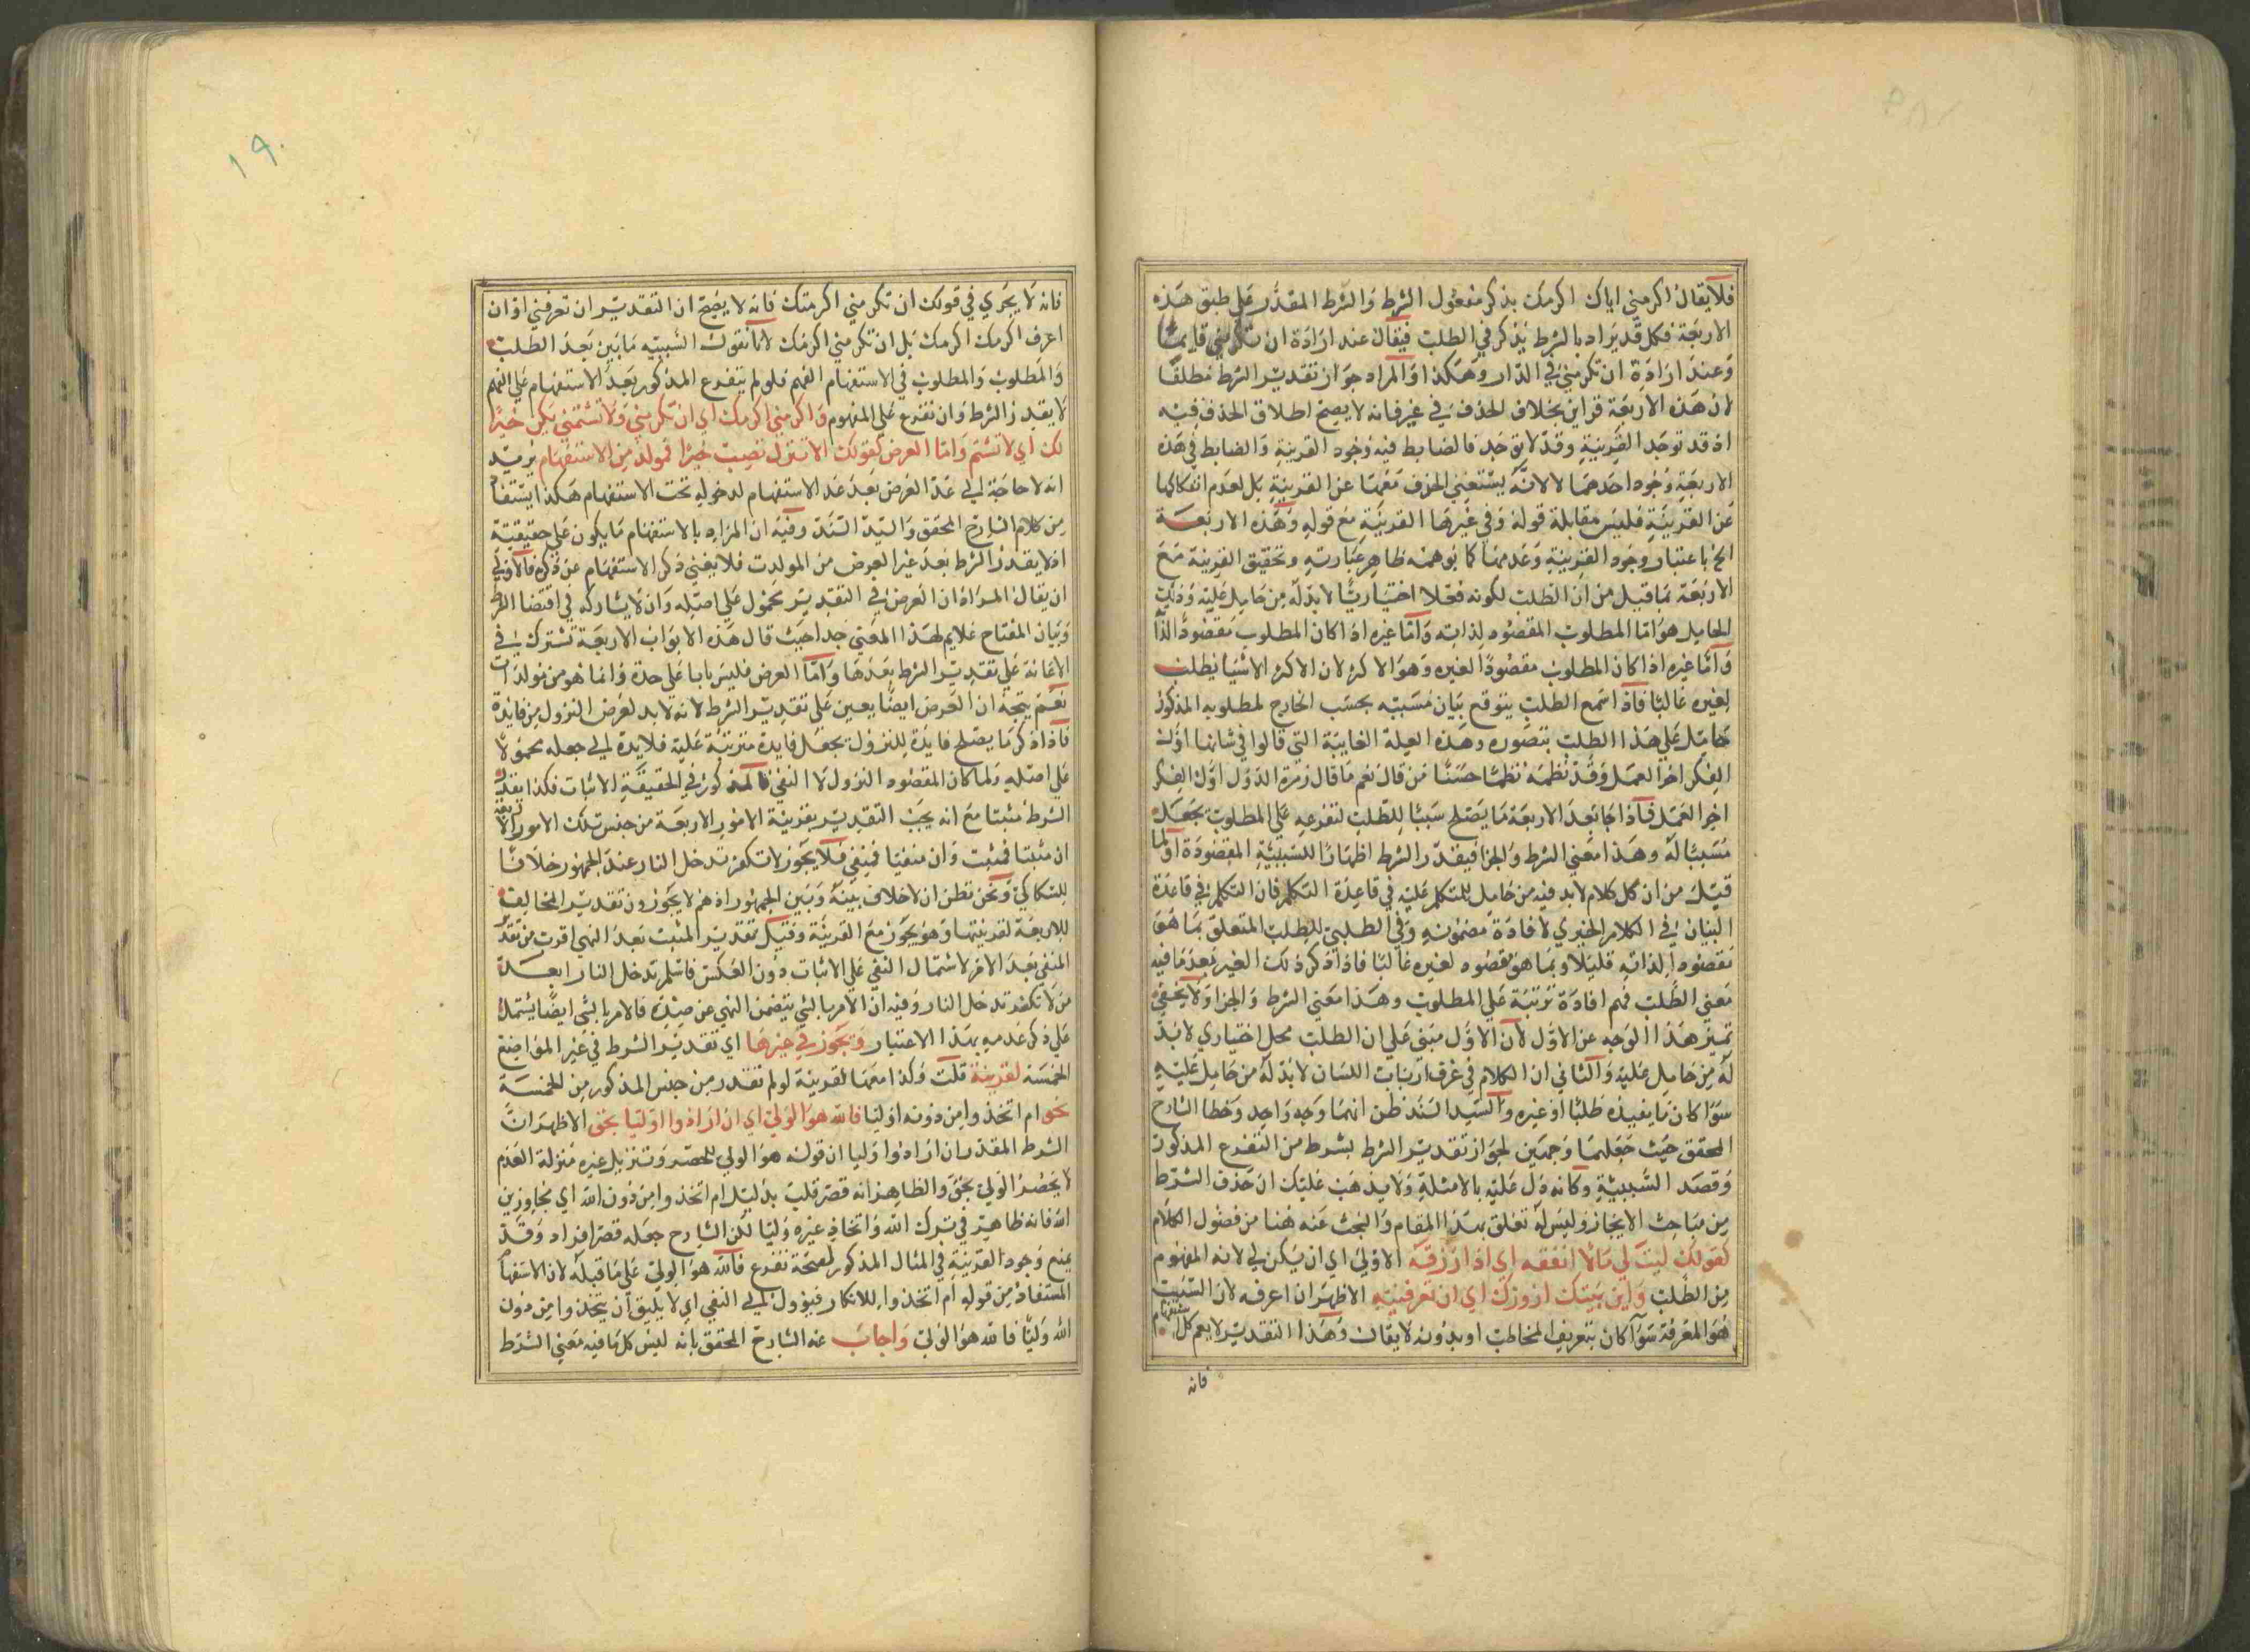 فلا يقال اكرمني اياك اكرمك بذكر مفعول الشرط والشرط المقدر على طبق هذه
الاربعة فكل قد يراد بالشرط يذكر في الطلب فيقال عند ارادة ان تكرمني قايما
وعند ارادة ان تكرمني في الدار وهكذا والمراد جواز تقدير الشرط مطلقا
لان هذه الاربعة قراين بخلاف الحذف في غيرها فانه لا يصح اطلاق الحذف فيه
اذ قد توجد القرينة وقد لا توجد فالضابط فيه وجود القرينة والضابط في هذه
الاربعة وجود احدهما لا لانه يستغني الحذف معها عن القرينة بل لعدم انفكاكها
عن القرينة فليس مقابلة قوله وفي غيرها القرينة مع قوله وهذه الاربعة
الخ باعتبار وجود القرينة وعدمها كما يوهمه ظاهر عبارته وتحقيق القرينة مع
الاربعة بما قيل من ان الطلب لكونه فعلا اختياريا لا بد له من حامل عليه وذلك
الحامل هو اما المطلوب المقصود لذاته واما غيره اذا كان المطلوب مقصودا لذا
واما غيره اذا كان المطلوب مقصودا لغيره وهو الاكثر لان الاكثر الاشيا يطلب
لغيره غالبا فاذا سمع الطلب يتوقع بيان مسببه بحسب الخارج لمطلوبه المذكور
حامل على هذا الطلب بتصوره وهذه العلة الغايية التي قالوا في شانها اول
الفكر اخر العمل وقد نظمه نظما حسنا من قال نعم ما قال زمرة الدول اول الفكر
اخر العمل فاذا جا بعد الاربعة ما يصلح سببا للطلب لتفرعه على المطلوب بجعله
مسببا له وهذا معنى الشرط والجزا فيقدر الشرط اظهارا للسببية المقصودة او لما
قيل من ان كل كلام لا بد فيه من حامل للمتكلم عليه في قاعدة التكلم فان التكلم في قاعدة
البيان في الكلام الخبري لافادة مضمونه وفي الطلبي للطلب المتعلق بما هو
مقصود لذاته قليلا وبما هو مقصود لغيره غالبا فاذا ذكر ذلك الغير بعد ما فيه
معنى الطلب فهم افادة ترتبه على المطلوب وهذا معنى الشرط والجزا ولا يخفى
تميز هذا الوجه عن الاول لان الاول مبنى على ان الطلب محل اختياري لا بد
له من حامل عليه والثاني ان الكلام في عرف ارباب اللسان لا بد له من حامل عليه
سوا كان ما يفيده طلبا او غيره والسيد السند ظن انهما وجه واحد وخطا الشارح
المحقق حيث جعلهما وجهين لجواز تقدير الشرط بشرط من التفرع المذكور
وقصد السببية وكانه دل عليه بالامثلة ولا يذهب عليك ان حذف الشرط
من مباحث الايجاز وليس له تعلق بهذا المقام والبحث عنه هنا من فضول الكلام
كقولك ليت لي مالا انفقه اي اذا ارزقه الاولى اي ان يكن لي لانه المفهوم
من الطلب واين بيتك ازورك اي ان تعرفنيه الاظهر ان اعرفه لان السبب
هو المعرفة سوا كان بتعريف المخاطب او بدونه لا يقال وهذا التقدير لا يعم كل استفهام
فانه
١٩٠
فانه لا يجري في قولك ان تكرمني اكرمتك فانه لا يصح ان التقدير ان تعرفني او ان
اعرف اكرمك اكرمك بل ان تكرمني اكرمك لانا نقول السببية ما بين بعد الطلب
والمطلوب والمطلوب في الاستفهام الفهم فلو لم يتفرع المذكور بعد الاستفهام على الفهم
لا يقدر الشرط وان تفرع على المفهوم واكرمني اكرمك اي ان تكرمني ولا تشتمني يكن خيرا
لك اي لا تشتم واما العرض كقولك الا تنزل تصيب خيرا فمولد من الاستفهام يريد
انه لا حاجة الى عد العرض بعد عد الاستفهام لدخوله تحت الاستفهام هكذا يستفاد
من كلام الشارح المحقق والسيد السند وفيه ان المراد بالاستفهام ما يكون على حقيقته
اذ لا يقدر الشرط بعد غير العرض من المولدات فلا يغني ذكر الاستفهام عن ذكره فالاولى
ان يقال المراد ان العرض في التقدير محمول على اصله وان لا يشاركه في اقتضا الشرط
وبيان المفتاح غلايم لهذا المعنى جدا حيث قال هذه الابواب الاربعة تشترك في
الاعانة على تقدير الشرط بعدها واما العرض فليس بابا على حدة وانما هو من مولدات
نعم يتجه ان العرض ايضا يعين على تقدير الشرط لانه لا بد لعرض النزول من فايدة
فاذا ذكر ما يصلح فايدة للنزول بجعل فايدة مترتبة عليه فلا يدة الى جعله محمولا
على اصله ولما كان المقصود النزول لا النفي فالمذكور في الحقيقة الاثبات فكذا يقدر
الشرط مثبتا مع انه يجب التقدير بقرينة الامور الاربعة من جنس تلك الامور الاربعة
ان مثبتا فمثبت وان منفيا فمنفي فلا يجوز لا تكفر تدخل النار عند الجمهور خلافا
للسكاكي ونحن نظن ان لا خلاف بينه وبين الجمهور اذ هم لا يجوزون تقدير المخالف
للاربعة لقرينتها وهو يجوز مع القرينة وقيل تقدير المثبت بعد النهي اقرب من تقدير
المنفي بعد الامر لاشتمال النفي على الاثبات دون العكس فاسلم تدخل النار ابعد
من لا تكفر تدخل النار وفيه ان الامر بالشي يتضمن النهي عن ضده فالامر بالشي ايضا يشتمل
على ذكر عدمه بهذا الاعتبار ويجوز في غيرها اي تقدير الشرط في غير المواضع
الخمسة لقرينة قلت وكذا معها لقرينة لو لم تقدر من جنس المذكور من الخمسة
نحو ام اتخذوا من دونه اوليا فالله هو الولي اي ان ارادوا اوليا بحق الاظهر ان
الشرط المقدر ان ارادوا وليا ان قوله هو الولي للحصر وتنزيل غيره منزلة العدم
لا يحضر الولي بحق والظاهر انه قصر قلب بدليل ام اتخذوا من دون الله اي مجاوزين
الله فانه ظاهر في ترك الله واتخاذ غيره وليا لكن الشارح جعله قصر افراد وقد
يمنع وجود القرينة في المثال المذكور لصحة تفرع فالله هو الولي على ما قبله لان الاستفهام
المستفاد من قوله ام اتخذوا للانكار فيؤول الى النفي اي لا يليق ان يتخذوا من دون
الله وليا فالله هو الولي واجاب عنه الشارح المحقق بانه ليس كل ما فيه معنى الشرط